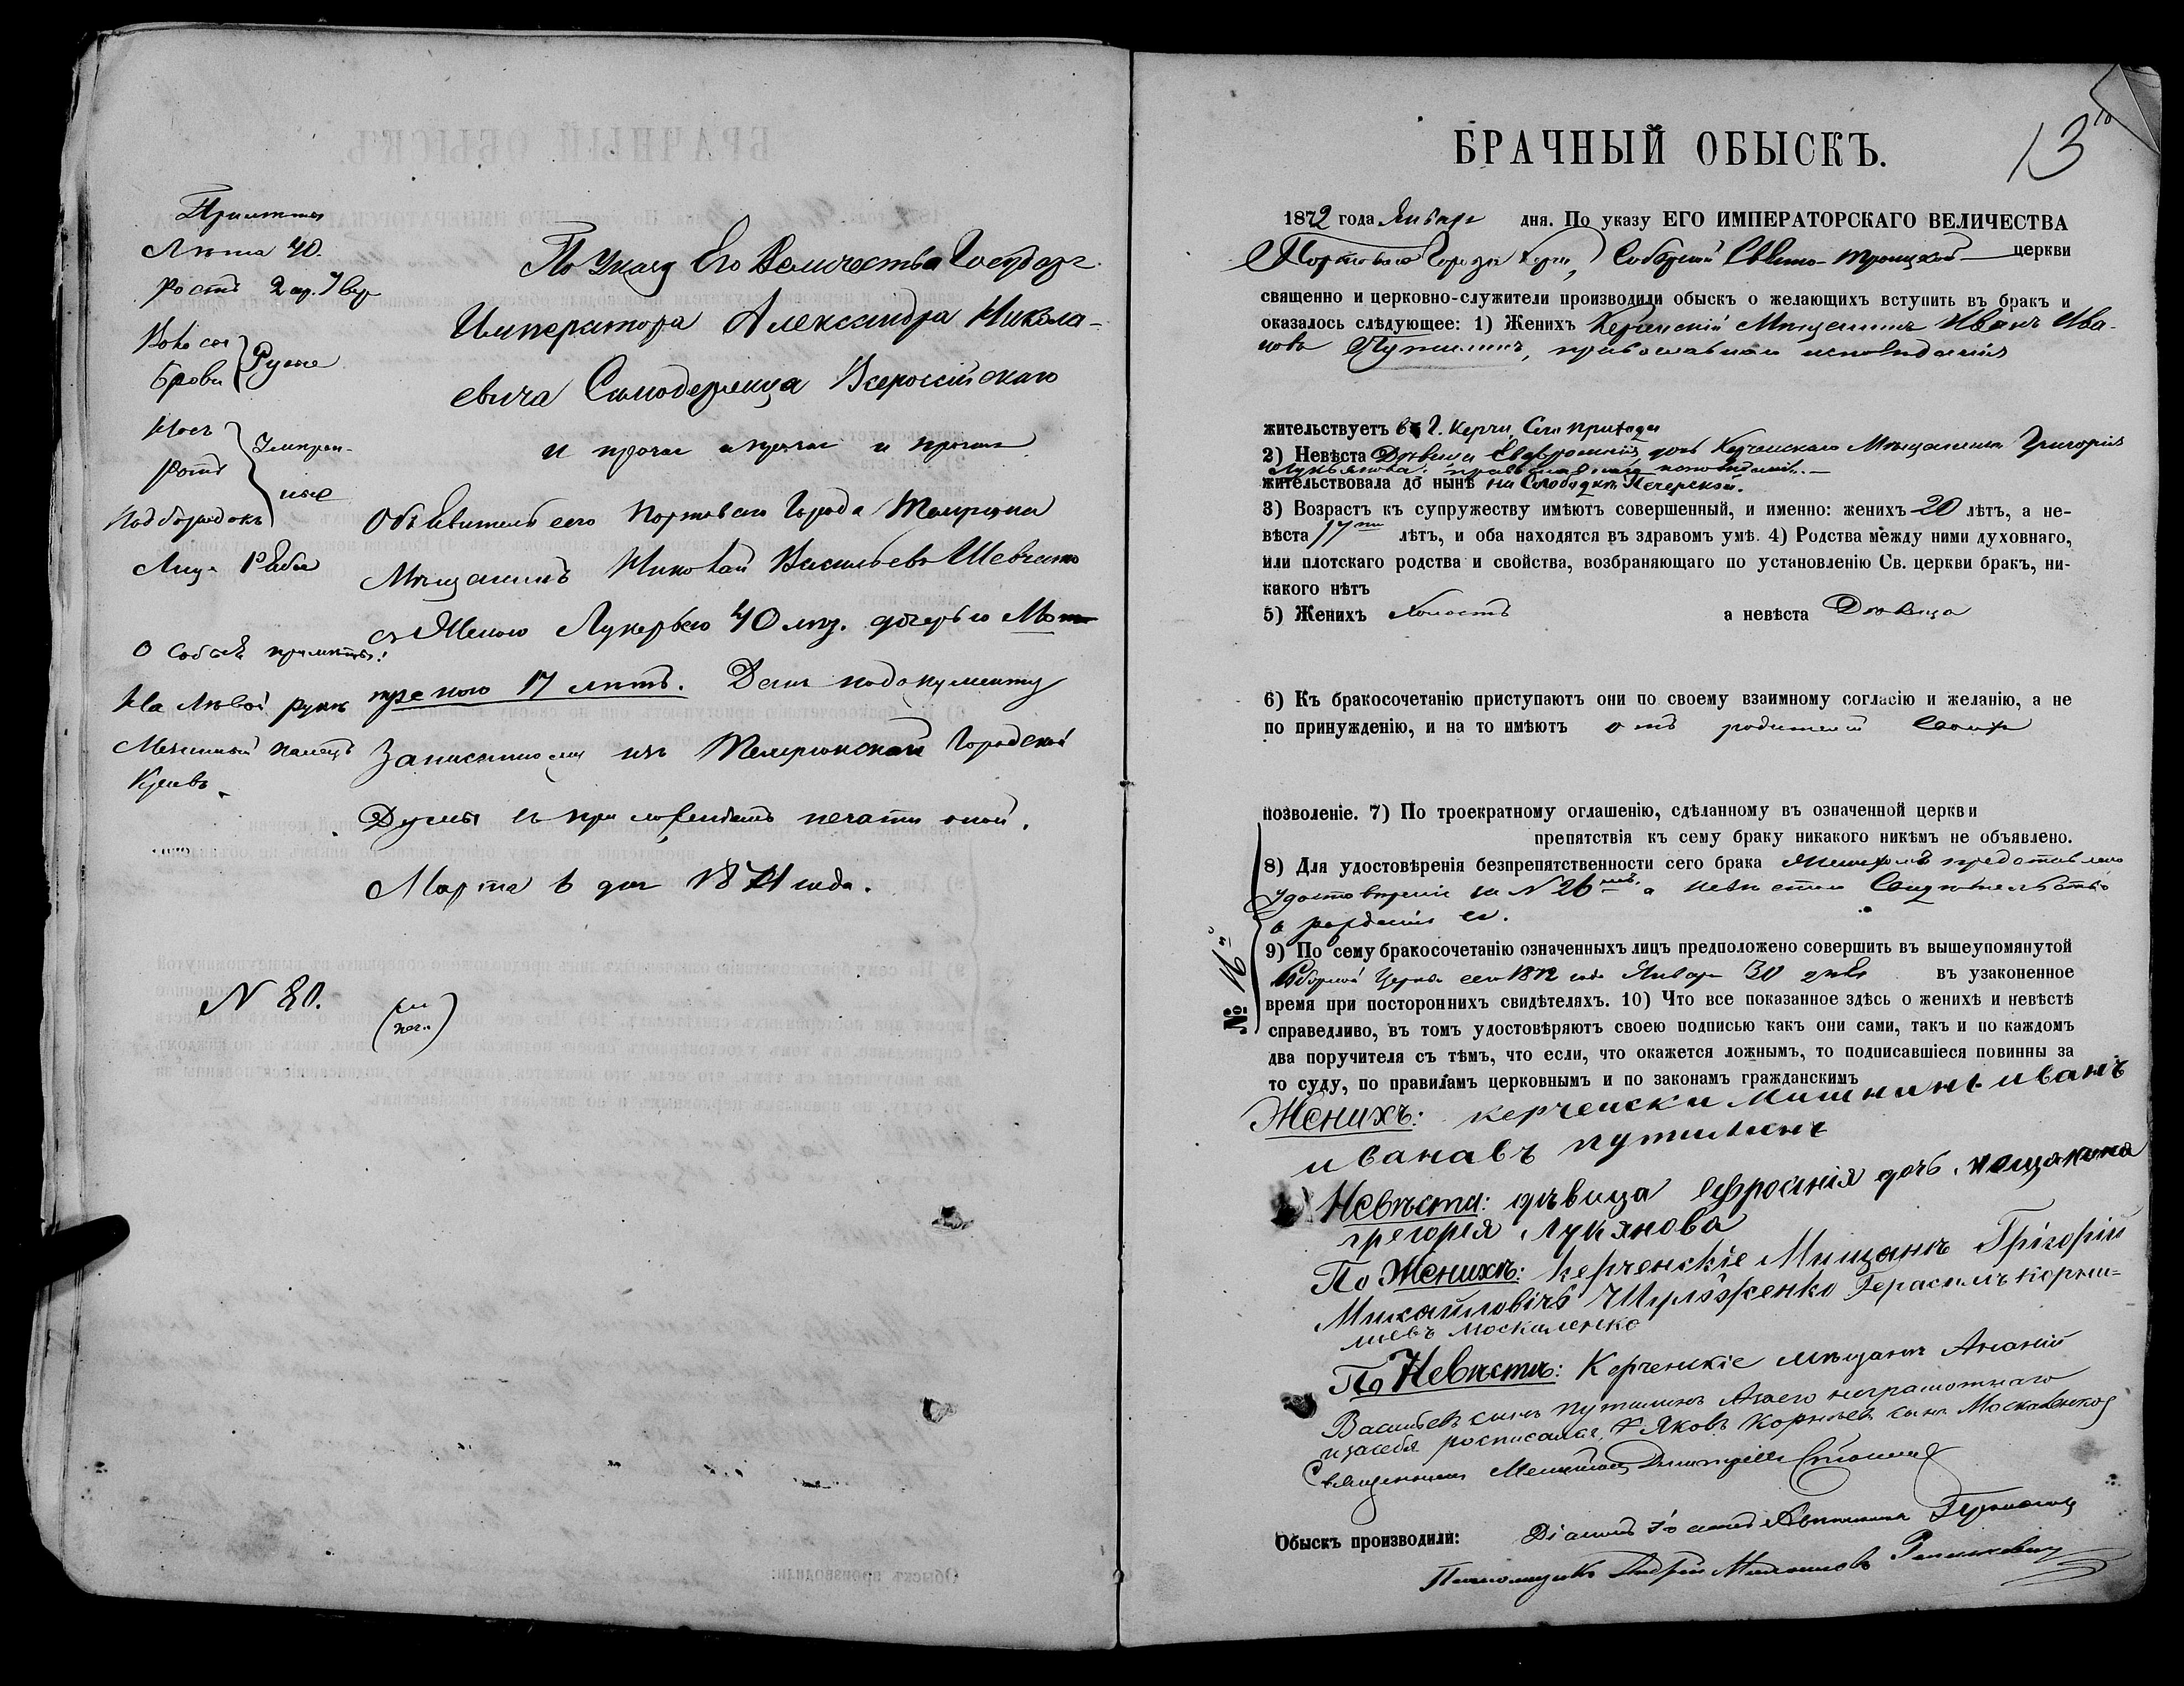 Приметы
Лета 40.
Ростъ 2 ар. 7 вер
Волосы
Брови
Русые
Носъ
Ротъ
Подбородокъ
Умерен-
ные
Лице Рябое
Особыя приметы:
На левой руке
Мизинный палецъ
Кривъ.
По Указу Его Величества Государя
Императора Александра Никола-
евича Самодержца Всероссійскаго
и прочая и прочая и прочая
Объявитель сего портоваго Города Темрюка
Мещанинъ Николай Васильевъ Шевченко
съ Женою Лукерьею 40 лет. дочерью Мат-
реною 17 летъ. Данъ
изъ Темрюкской Городской
Думы съ приложеніемъ печати оной.
Марта 6 дня 1871 года.
N 80.
(м
печ.)
БРАЧНЫЙ ОБЫСКЪ.
13
1872 года Января дня. По указу ЕГО ИМПЕРАТОРСКАГО ВЕЛИЧЕСТВА
Портоваго Города Керчи, Соборной Свято-Троицкой церкви
священно и церковно-служители производили обыскъ о желающихъ вступить въ бракъ и
оказалось слѣдующее: 1) Женихъ Керченскій Мещанинъ Иванъ Ива-
новъ Путилинъ, православнаго исповеданія
жительствуетъ въ Г. Керчи, Сего прихода
2) Невѣста Девица Евфросинія, дочь Керченскаго Мещанина Григорія
Лукьянова. православнаго исповеданія.
жительствовала до нынѣ на Слободке Печерской.
3) Возрастъ къ супружеству имѣютъ совершенный, и именно: женихъ 20 лѣтъ, а не-
вѣста 17ти лѣтъ, и оба находятся въ здравомъ умѣ. 4) Родства между ними духовнаго,
или плотскаго родства и свойства, возбраняющаго по установленію Св. церкви бракъ, ни-
какого нѣтъ
5) Женихъ холостъ а невѣста Девица
6) Къ бракосочетанію приступаютъ они по своему взаимному согласію и желанію, а не
по принужденію, и на то имѣютъ отъ родителей своихъ
позволеніе. 7) По троекратному оглашенію, сдѣланному въ означенной церкви
препятствія къ сему браку никакого никѣмъ не объявлено.
8) Для удостовѣренія безпрепятственности сего брака Женихомъ представлено
удостовереніе за N 26 а невестою Свидетельство
о рожденіи ея.
№ 16
9) По сему бракосочетанію означенныхъ лицъ предположено совершить въ вышеупомянутой
Соборной Церкви сего 1872 года Января 30 дня въ узаконенное
время при постороннихъ свидѣтеляхъ. 10) Что все показанное здѣсь о женихѣ и невѣстѣ
справедливо, въ томъ удостовѣряютъ своею подписью какъ они сами, такъ и по каждомъ
два поручителя съ тѣмъ, что если, что окажется ложнымъ, то подписавшіеся повинны за
то суду, по правиламъ церковнымъ и по законамъ гражданскимъ
Женихъ: керченски Мишнинъ иванъ
иванавъ путилинъ
Невѣста: девица Ефросинія дочь
грегорея Лукянова
По Женихѣ: Керченскіе Мищане Грігорій
Михайловічъ Герасимъ Корни-
лиевъ Москаленко
По Невѣсте: Керченскіе мещане Ананій
Васильевъ сынъ путилинъ А за его неграмотнаго
и засебя росписался Яковъ Корнеевъ сынъ Москаленко
Священникъ
Обыскъ производили: Діаконъ